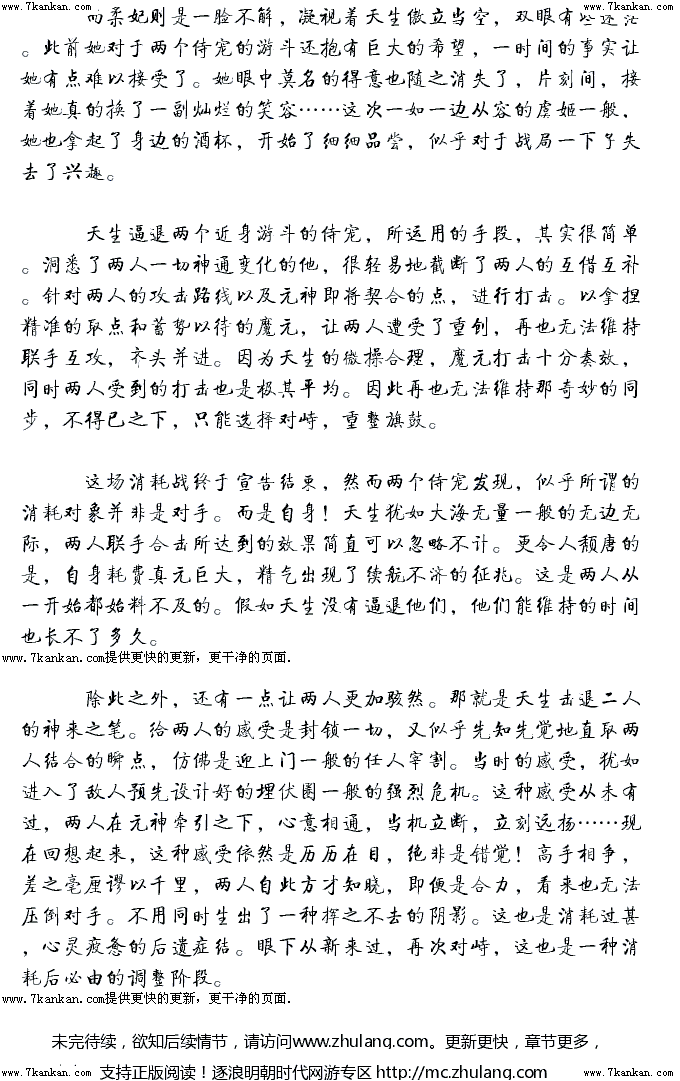 www.7kankan.com www.7kankan.com
而柔妃则是一脸不解，凝视着天生傲立当空，双眼有些迷茫
。此前她对于两个侍宠的游斗还抱有巨大的希望，一时间的事实让
她有点难以接受了。她眼中莫名的得意也随之消失了，片刻间，接
着她真的换了一副灿烂的笑容……这次一如一边从容的虞姬一般，
她也拿起了身边的酒杯，开始了细细品尝，似乎对于战局一下子失
去了兴趣。
天生逼退两个近身游斗的侍宠，所运用的手段，其实很简单
。洞悉了两人一切神通变化的他，很轻易地截断了两人的互借互补
。针对两人的攻击路线以及元神即将契合的点，进行打击。以拿捏
精准的取点和蓄势以待的魔元，让两人遭受了重创，再也无法维持
联手互攻，齐头并进。因为天生的微操合理，魔元打击十分奏效，
同时两人受到的打击也是极其平均。因此再也无法维持那奇妙的同
步，不得已之下，只能选择对峙，重整旗鼓。
这场消耗战终于宣告结束，然而两个侍宠发现，似乎所谓的
消耗对象并非是对手。而是自身！天生犹如大海无量一般的无边无
际，两人联手合击所达到的效果简直可以忽略不计。更令人颓唐的
是，自身耗费真元巨大，精气出现了续航不济的征兆。这是两人从
一开始都始料不及的。假如天生没有逼退他们，他们能维持的时间
也长不了多久。
www.7kankan.com提供更快的更新，更干净的页面.
除此之外，还有一点让两人更加骇然。那就是天生击退二人
的神来之笔。给两人的感受是封锁一切，又似乎先知先觉地直取两
人结合的瞬点，仿佛是迎上门一般的任人宰割。当时的感受，犹如
进入了敌人预先设计好的埋伏圈一般的强烈危机。这种感受从未有
过，两人在元神牵引之下，心意相通，当机立断，立刻远扬……现
在回想起来，这种感受依然是历历在目，绝非是错觉！高手相争，
差之毫厘谬以千里，两人自此方才知晓，即便是合力，看来也无法
压倒对手。不用同时生出了一种挥之不去的阴影。这也是消耗过甚
，心灵疲惫的后遗症结。眼下从新来过，再次对峙，这也是一种消
耗后必由的调整阶段。
www.7kankan.com提供更快的更新，更干净的页面.
未完待续，欲知后续情节，请访问www.zhulang.com。更新更快，章节更多，
www.7kankan.com 支持正版阅读！逐浪明朝时代网游专区 http://mc.zhulang.com www.7kankan.com